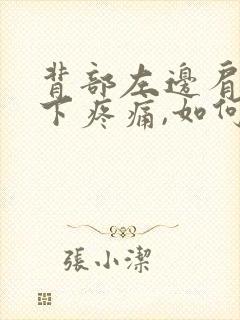 背部左邊肩
下疼痛,如何
張小潔